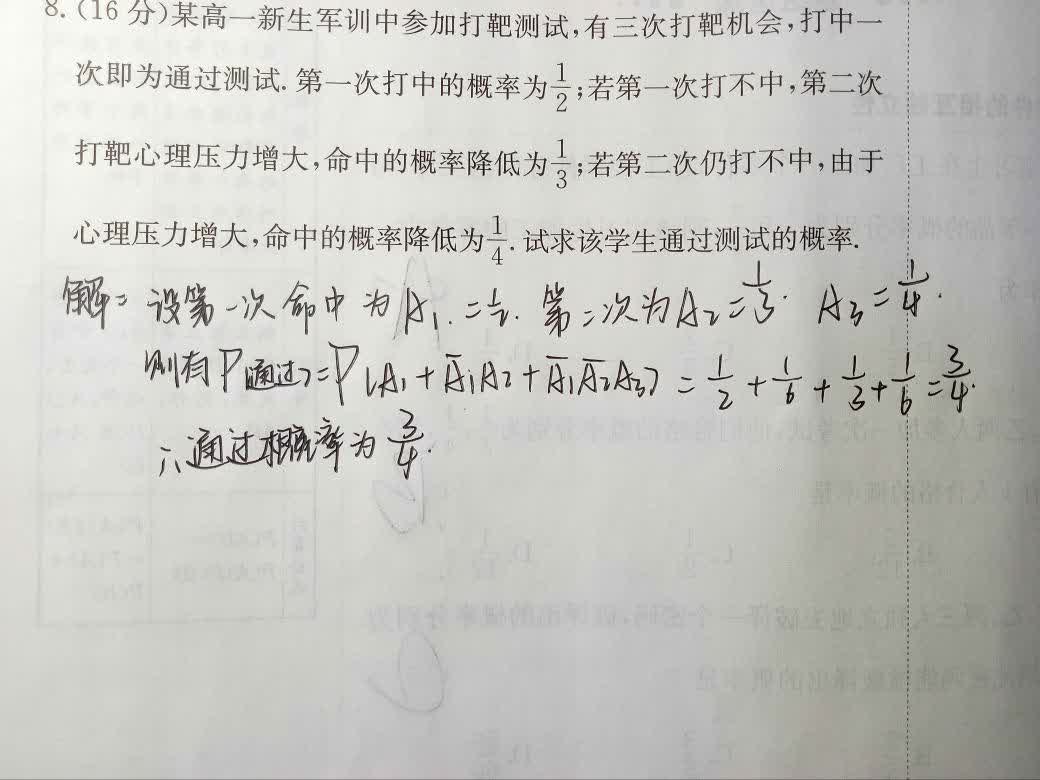 8.(16分)某高一新生军训中参加打靶测试,有三次打靶机会,打中一
次即为通过测试.第一次打中的概率为1/2;若第一次打不中,第二次
打靶心理压力增大,命中的概率降低为1/3;若第二次仍打不中,由于
心理压力增大,命中的概率降低为1/4.试求该学生通过测试的概率.
解: 设第一次命中为A₁.=1/2. 第二次为A₂=1/3. A₃=1/4.
则有P(通过)=P(A₁+Ā₁A₂+Ā₁Ā₂A₃)=1/2+1/6+1/3+1/6=3/4.
∴通过概率为3/4.